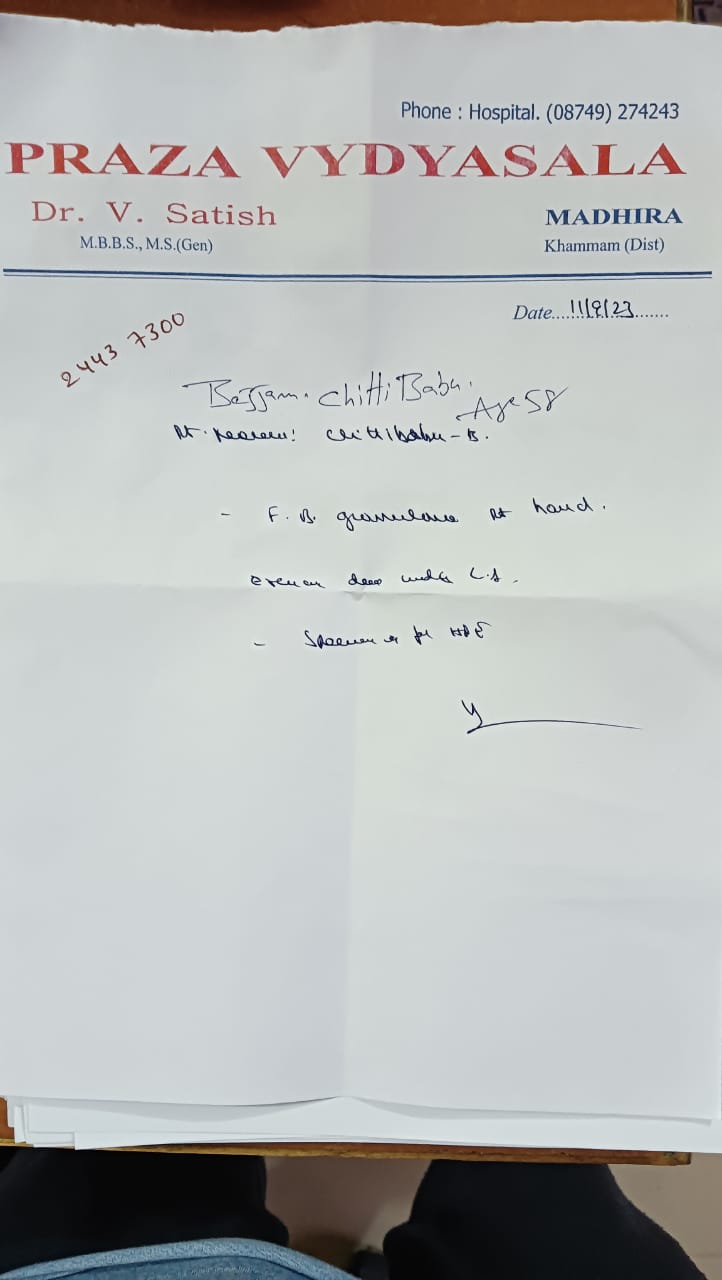 Phone : Hospital. (08749) 274243
PRAZA VYDYASALA
Dr. V. Satish
MADHIRA
M.B.B.S., M.S.(Gen)
Khammam (Dist)
Date....11/9/23.......
2443 7300
Chitti Babu.
Age 58
Chittibabu - B.
- F. B. granuloma Rt hand.
under L.A.
- for HPE